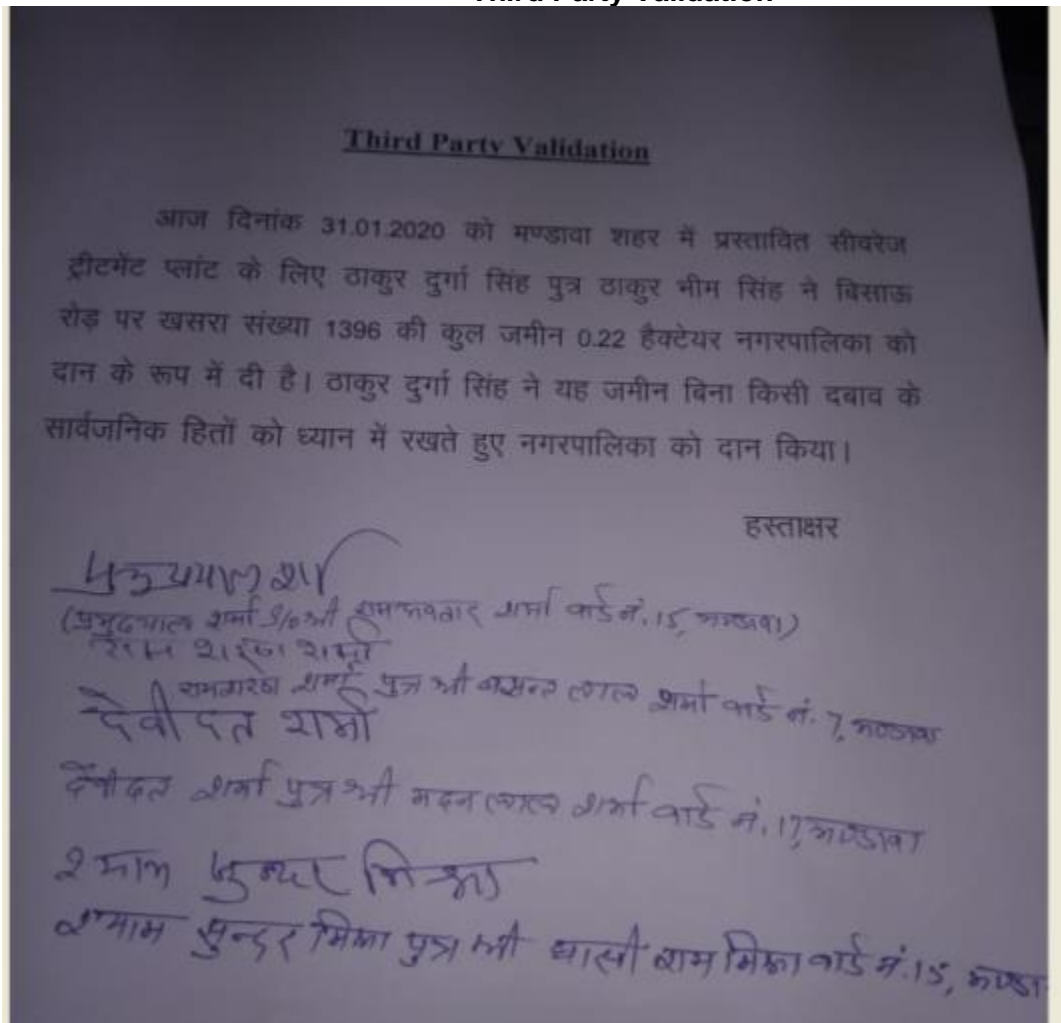 Third Party Validation
Third Party Validation
आज दिनांक 31.01.2020 को मण्डावा शहर में प्रस्तावित सीवरेज
ट्रीटमेंट प्लांट के लिए ठाकुर दुर्गा सिंह पुत्र ठाकुर भीम सिंह ने बिसाऊ
रोड़ पर खसरा संख्या 1396 की कुल जमीन 0.22 हैक्टेयर नगरपालिका को
दान के रूप में दी है। ठाकुर दुर्गा सिंह ने यह जमीन बिना किसी दबाव के
सार्वजनिक हितों को ध्यान में रखते हुए नगरपालिका को दान किया।
हस्ताक्षर
(प्रभुदयाल शर्मा S/o श्री रामअवतार शर्मा वार्ड नं. 15, मण्डावा)
शर्मा
शर्मा पुत्र श्री बसन्त लाल शर्मा वार्ड नं. 7, मण्डावा
देवीदत शर्मा
देवीदत शर्मा पुत्र श्री मदनलाल शर्मा वार्ड नं. 17, मण्डावा
श्याम सुन्दर मिश्रा
श्याम सुन्दर मिश्रा पुत्र श्री घासी राम मिश्रा वार्ड नं. 15,